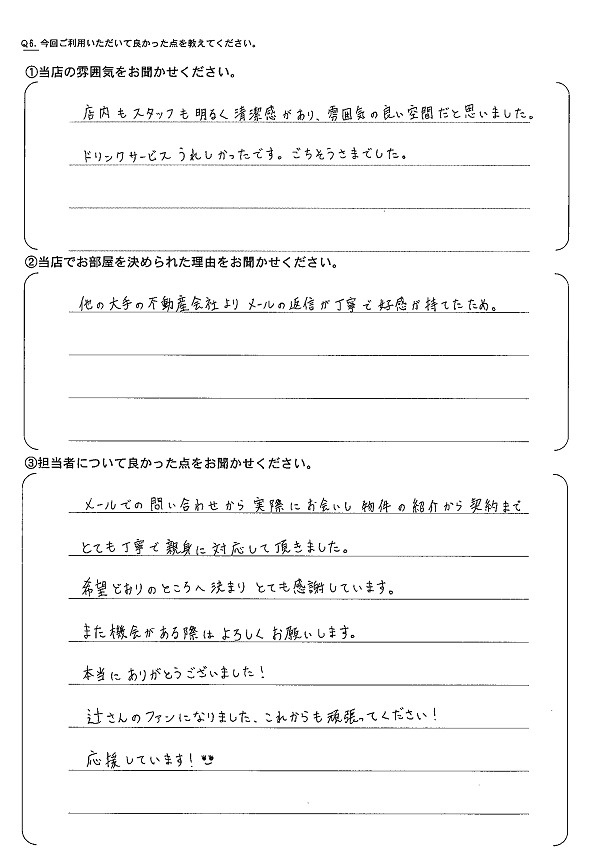 Q6. 今回ご利用いただいて良かった点を教えてください。
①当店の雰囲気をお聞かせください。
店内もスタッフも明るく清潔感があり、雰囲気の良い空間だと思いました。
ドリンクサービスうれしかったです。ごちそうさまでした。
②当店でお部屋を決められた理由をお聞かせください。
他の大手の不動産会社よりメールの返信が丁寧で好感が持てたため。
③担当者について良かった点をお聞かせください。
メールでの問い合わせから実際にお会いし物件の紹介から契約まで
とても丁寧で親身に対応して頂きました。
希望どおりのところへ決まりとても感謝しています。
また機会がある際はよろしくお願いします。
本当にありがとうございました!
辻さんのファンになりました、これからも頑張ってください!
応援しています!